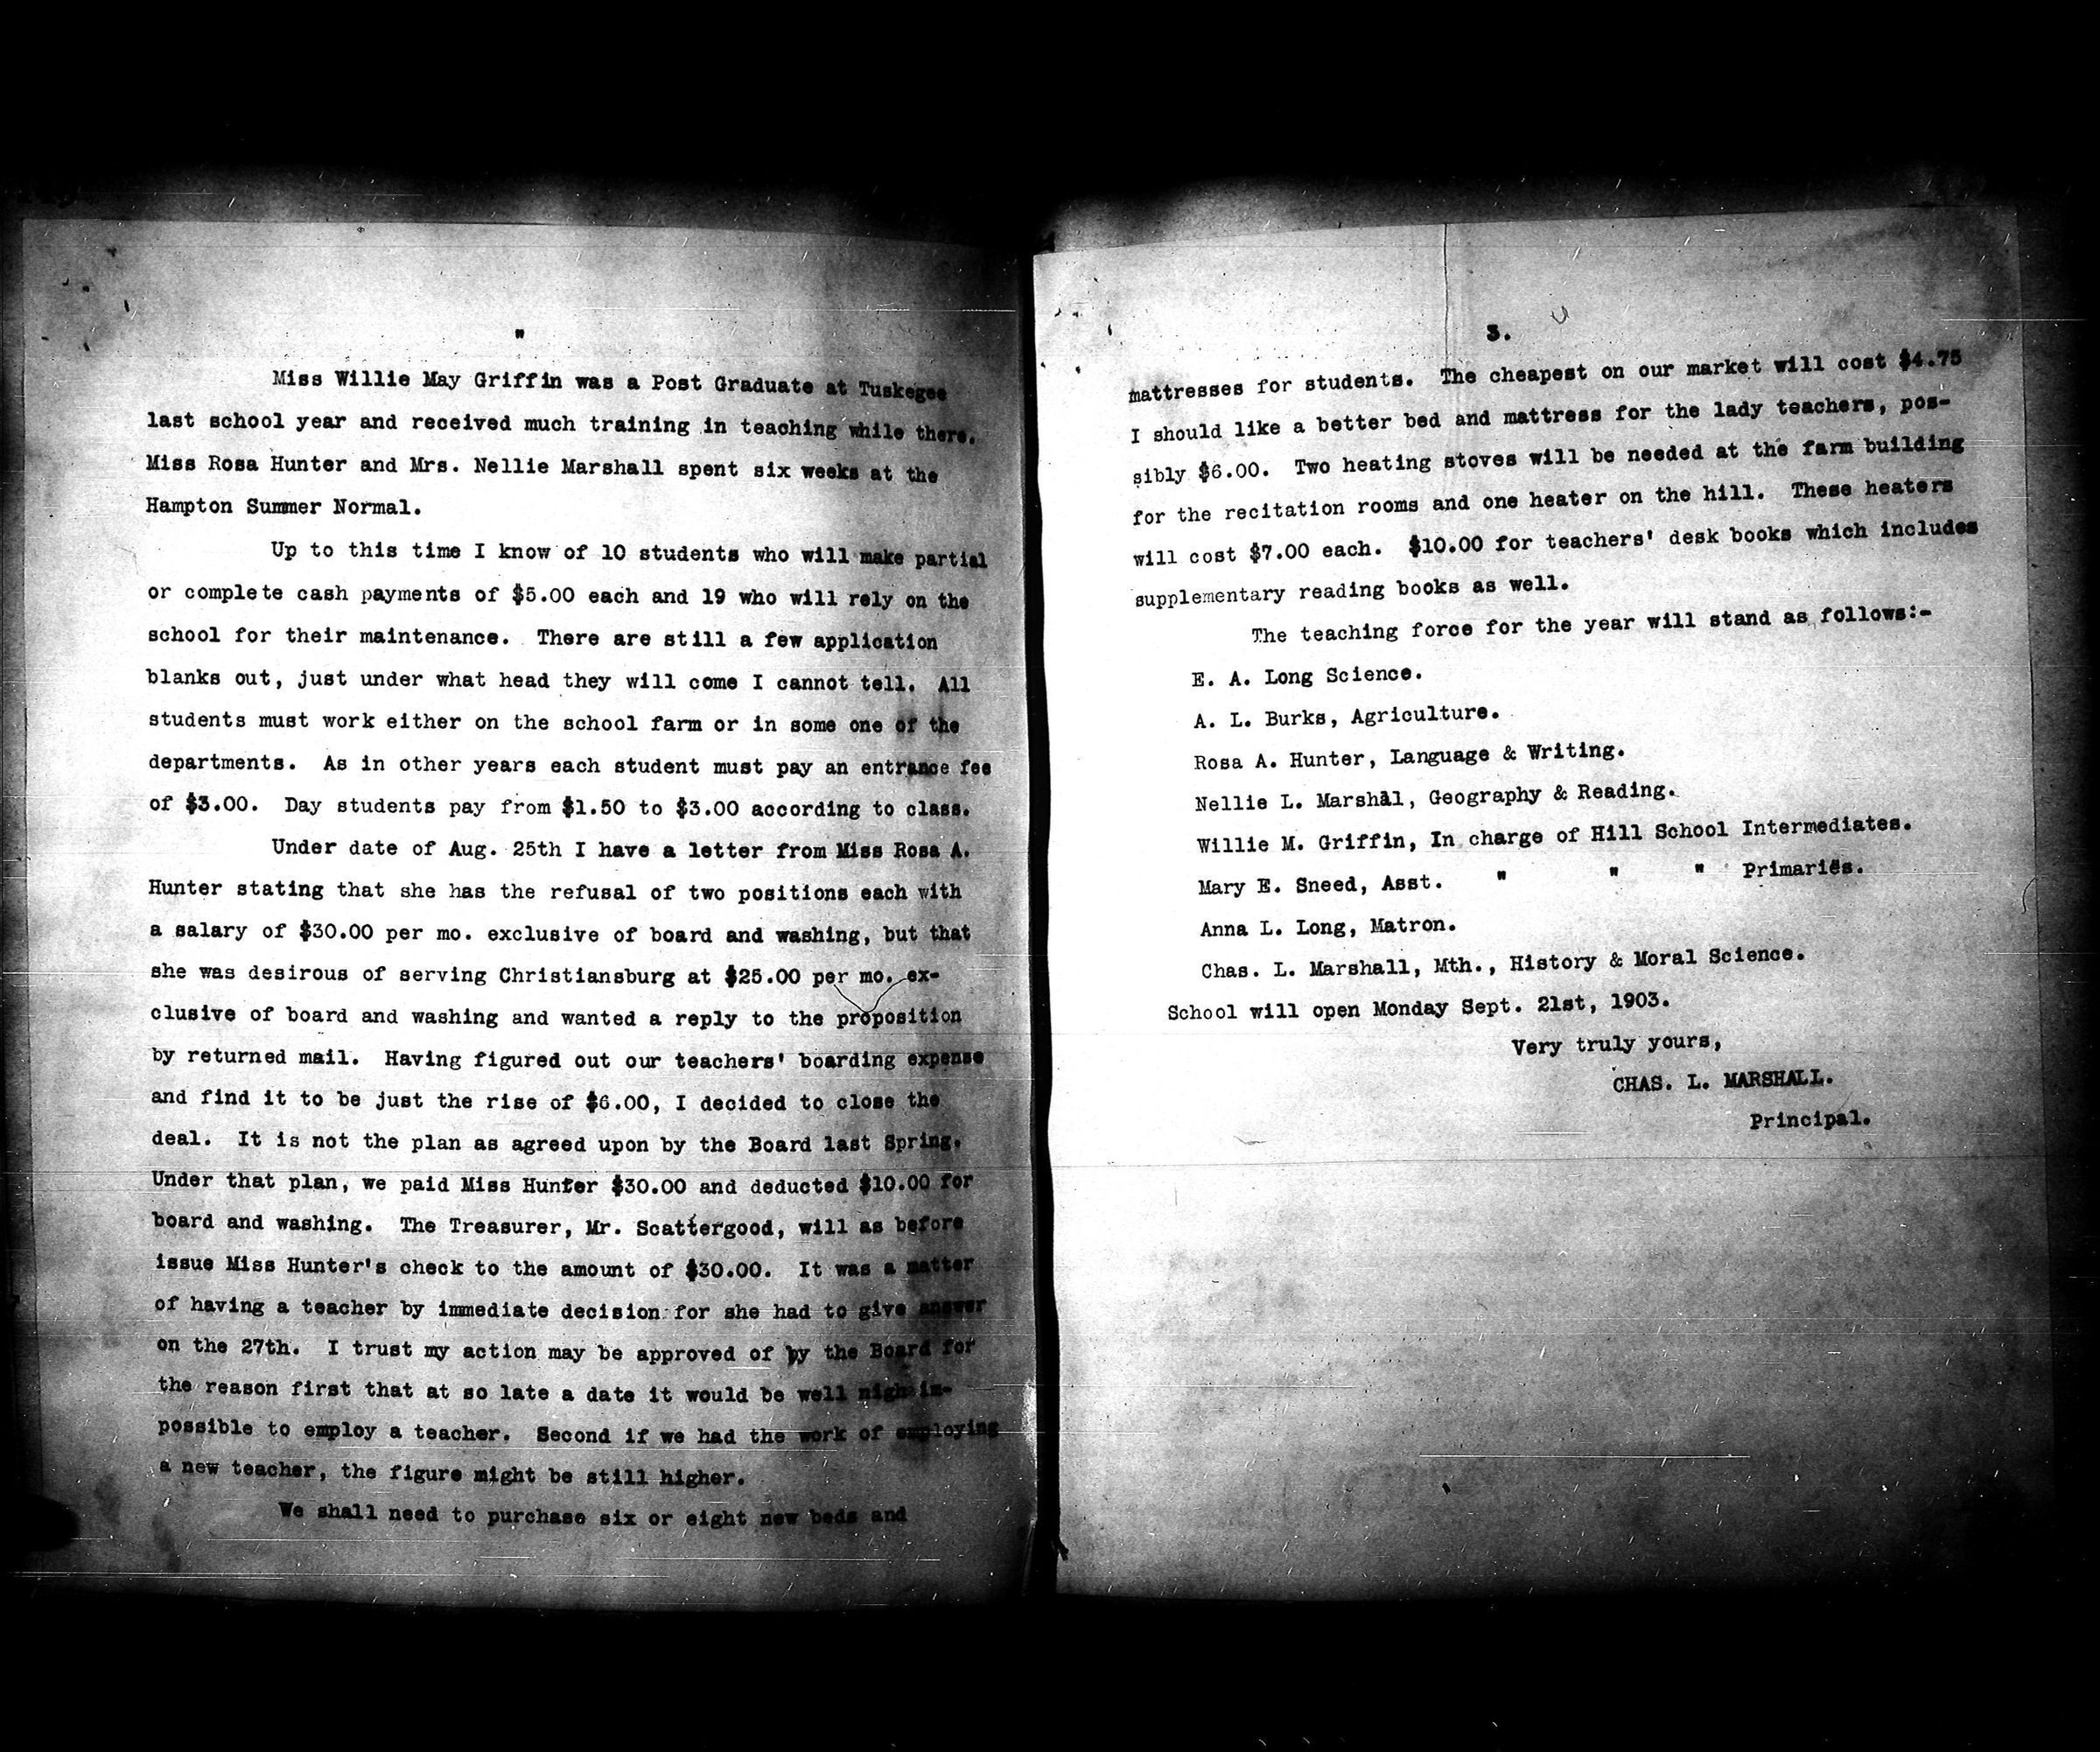 "
Miss Willie May Griffin was a Post Graduate at Tuskegee
last school year and received much training in teaching while there.
Miss Rosa Hunter and Mrs. Nellie Marshall spent six weeks at the
Hampton Summer Normal.
Up to this time I know of 10 students who will make partial
or complete cash payments of $5.00 each and 19 who will rely on the
school for their maintenance. There are still a few application
blanks out, just under what head they will come I cannot tell. All
students must work either on the school farm or in some one of the
departments. As in other years each student must pay an entrance fee
of $3.00. Day students pay from $1.50 to $3.00 according to class.
Under date of Aug. 25th I have a letter from Miss Rosa A.
Hunter stating that she has the refusal of two positions each with
a salary of $30.00 per mo. exclusive of board and washing, but that
she was desirous of serving Christiansburg at $25.00 per mo. ex-
clusive of board and washing and wanted a reply to the proposition
by returned mail. Having figured out our teachers' boarding expense
and find it to be just the rise of $6.00, I decided to close the
deal. It is not the plan as agreed upon by the Board last Spring.
Under that plan, we paid Miss Hunter $30.00 and deducted $10.00 for
board and washing. The Treasurer, Mr. Scattergood, will as before
issue Miss Hunter's check to the amount of $30.00. It was a matter
of having a teacher by immediate decision for she had to give answer
on the 27th. I trust my action may be approved of by the Board for
the reason first that at so late a date it would be well nigh im-
possible to employ a teacher. Second if we had the work of employing
a new teacher, the figure might be still higher.
We shall need to purchase six or eight new beds and
3.
mattresses for students. The cheapest on our market will cost $4.75
I should like a better bed and mattress for the lady teachers, pos-
sibly $6.00. Two heating stoves will be needed at the farm building
for the recitation rooms and one heater on the hill. These heaters
will cost $7.00 each. $10.00 for teachers' desk books which includes
supplementary reading books as well.
The teaching force for the year will stand as follows:-
E. A. Long Science.
A. L. Burks, Agriculture.
Rosa A. Hunter, Language & Writing.
Nellie L. Marshal, Geography & Reading.
Willie M. Griffin, In charge of Hill School Intermediates.
Mary E. Sneed, Asst. " " " Primaries.
Anna L. Long, Matron.
Chas. L. Marshall, Mth., History & Moral Science.
School will open Monday Sept. 21st, 1903.
Very truly yours,
CHAS. L. MARSHALL.
Principal.